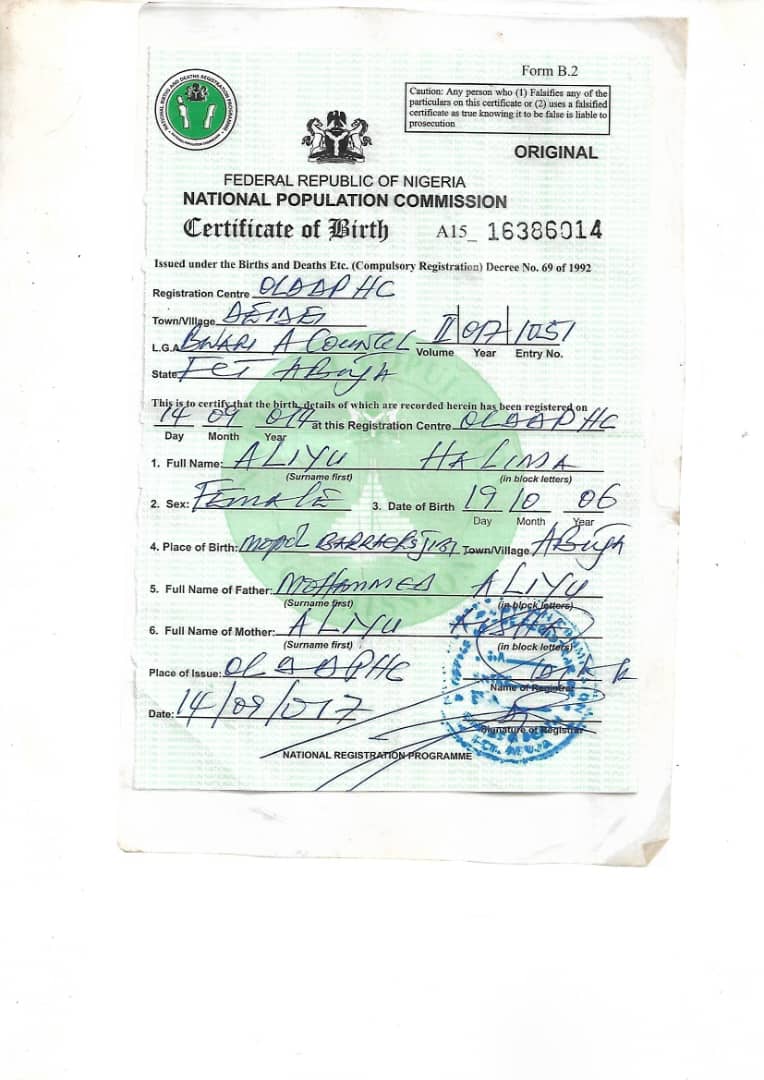 NATIONAL BIRTHS AND DEATHS REGISTRATION PROGRAMME
Form B.2
Caution: Any person who (1) Falsifies any of the
particulars on this certificate or (2) uses a falsified
certificate as true knowing it to be false is liable to
prosecution
ORIGINAL
FEDERAL REPUBLIC OF NIGERIA
NATIONAL POPULATION COMMISSION
Certificate of Birth A15_ 16386014
Issued under the Births and Deaths Etc. (Compulsory Registration) Decree No. 69 of 1992
Registration Centre OLAAPHC
Town/Village DEIDEI
L.G.A BWARI A COUNCEL II 017 1051
Volume Year Entry No.
State FCT ABUJA
This is to certify that the birth, details of which are recorded herein has been registered on
14 09 017 at this Registration Centre OLAAPHC
Day Month Year
1. Full Name: ALIYU HALIMA
(Surname first) (in block letters)
2. Sex: FEMALE 3. Date of Birth 19 10 06
Day Month Year
4. Place of Birth: MOPOL Town/Village ABUJA
5. Full Name of Father: MOHAMMED ALIYU
(Surname first) (in block letters)
6. Full Name of Mother: ALIYU
(Surname first) (in block letters)
Place of Issue: OLAAPHC
Name of Registrar
Date: 14/09/2017
Signature of Registrar
NATIONAL REGISTRATION PROGRAMME